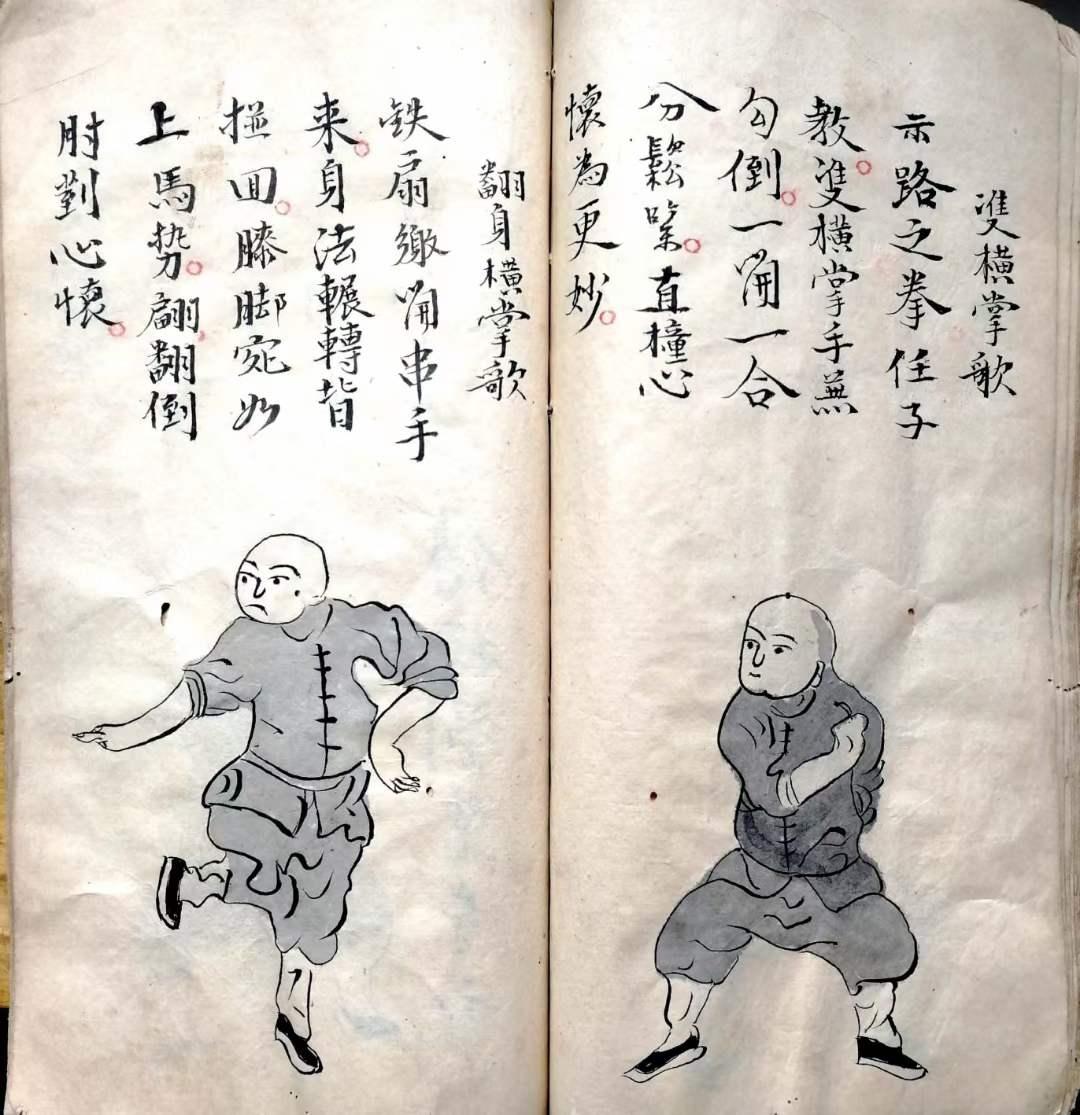 雙横掌歌
示路之拳任子
教雙横掌手無
勾倒一開一合
分鬆緊直撞心
懷為更妙
翻身横掌歌
铁扇開串手
来身法輾轉皆
回膝脚宛如
上馬势翩翻倒
肘對心懷